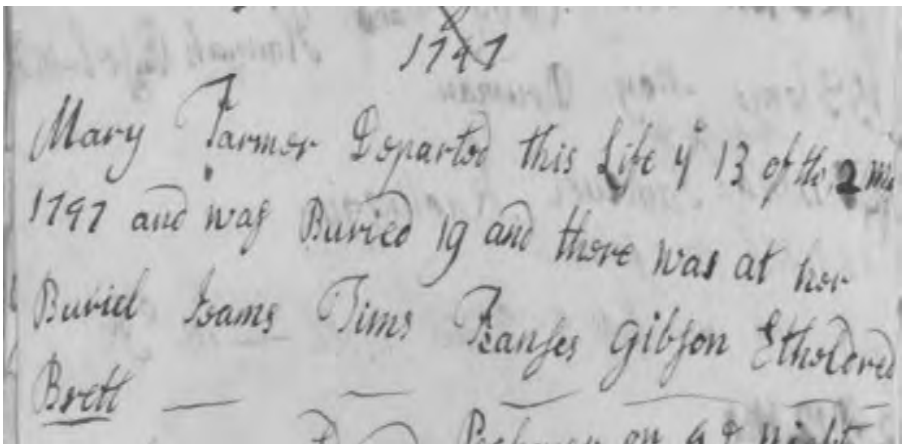 1797
Mary Farmer Departed this Life ye 13 of the 2 mo
1797 and was Buried 19 and there was at her
Buriel Tims Franses Gibson Etheldred
Brett
on